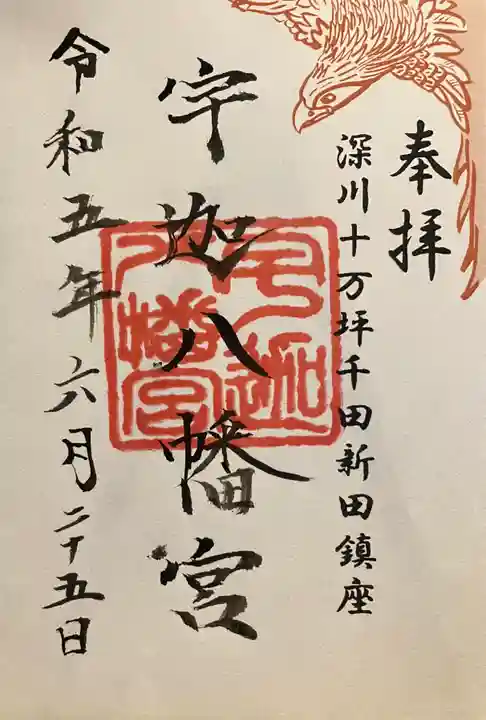 奉拝
深川十万坪千田新田鎮座
宇迦八幡宮
宇迦八幡宮
令和五年六月二十五日